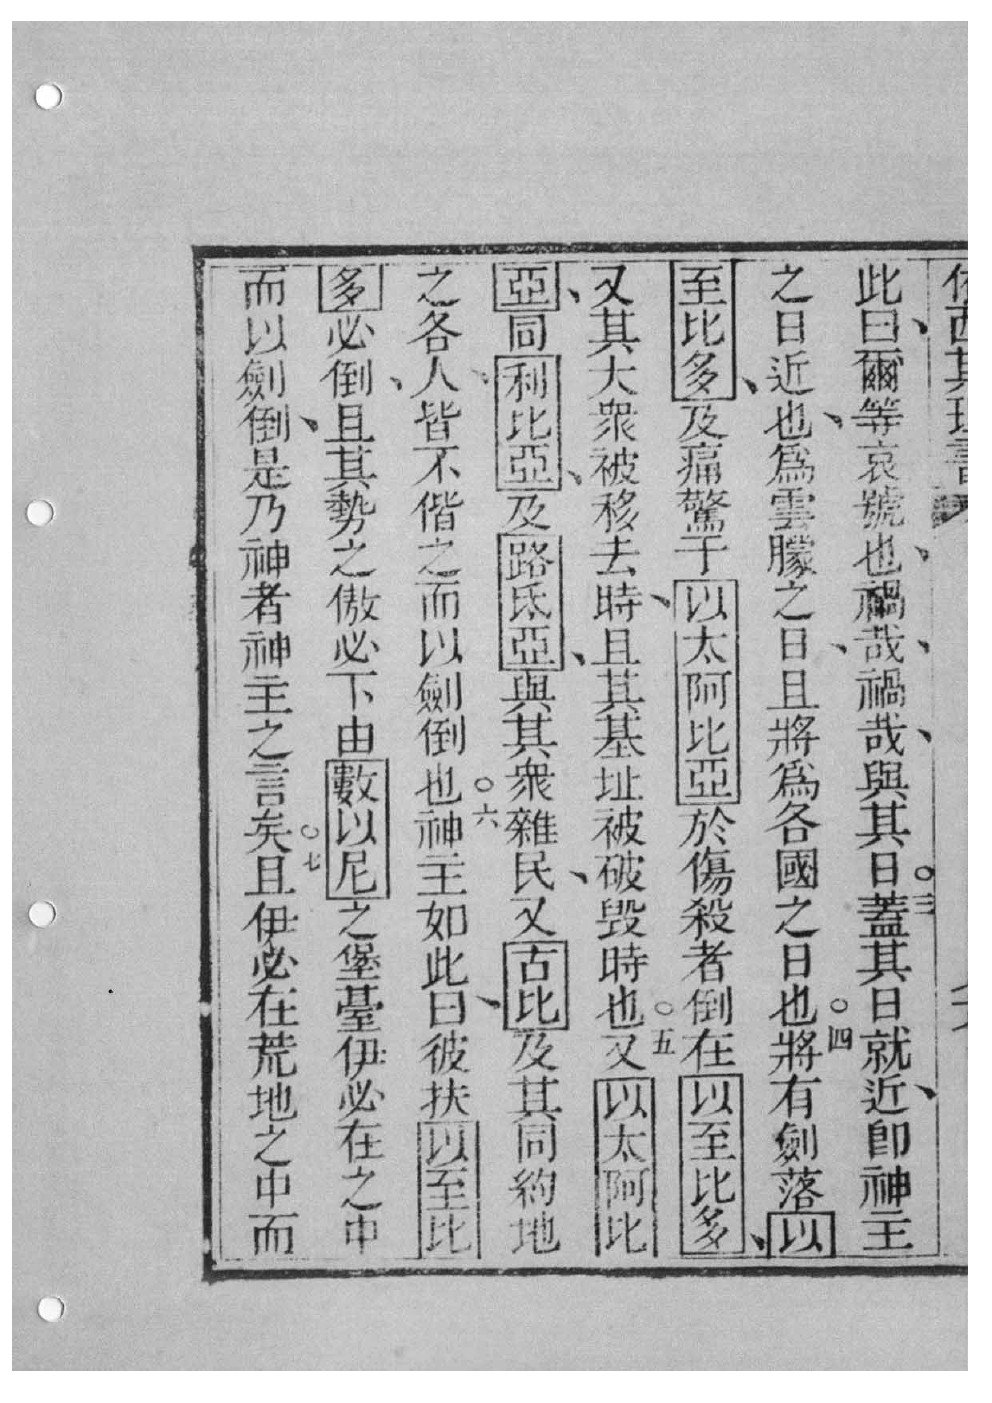 依西其理書
此曰、爾等哀號也、禍哉、禍哉、與其日○三蓋其日就近、卽神主
之日近也、爲雲朦之日、且將爲各國之日也○四將有劍落以
至比多、及痛驚于以太阿比亞於傷殺者倒在以至比多、
又其大衆被移去時、且其基址被破毀時也○五又以太阿比
亞、同利比亞、及路氐亞、與其衆雜民、又古比及其同約地
之各人、皆不偕之而以劍倒也○六神主如此曰、彼扶以至比
多必倒、且其勢之傲必下由數以尼之堡臺伊必在之中
而以劍倒、是乃神者神主之言矣○七且伊必在荒地之中而